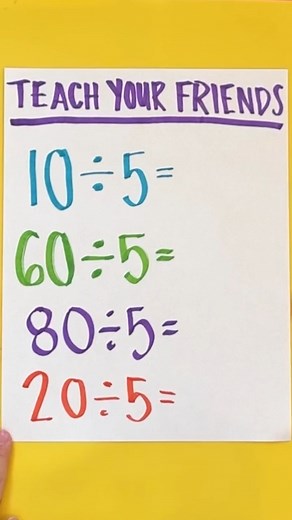 TEACH YOUR FRIENDS
10÷5=
60÷5=
80÷5=
20÷5=